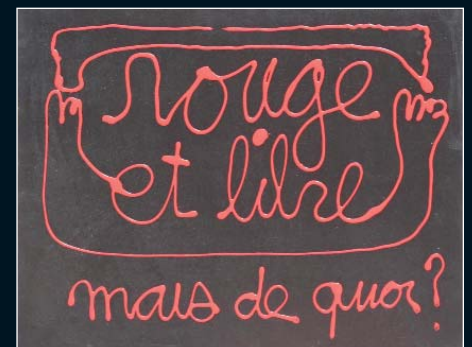 rouge
et libre
mais de quoi?